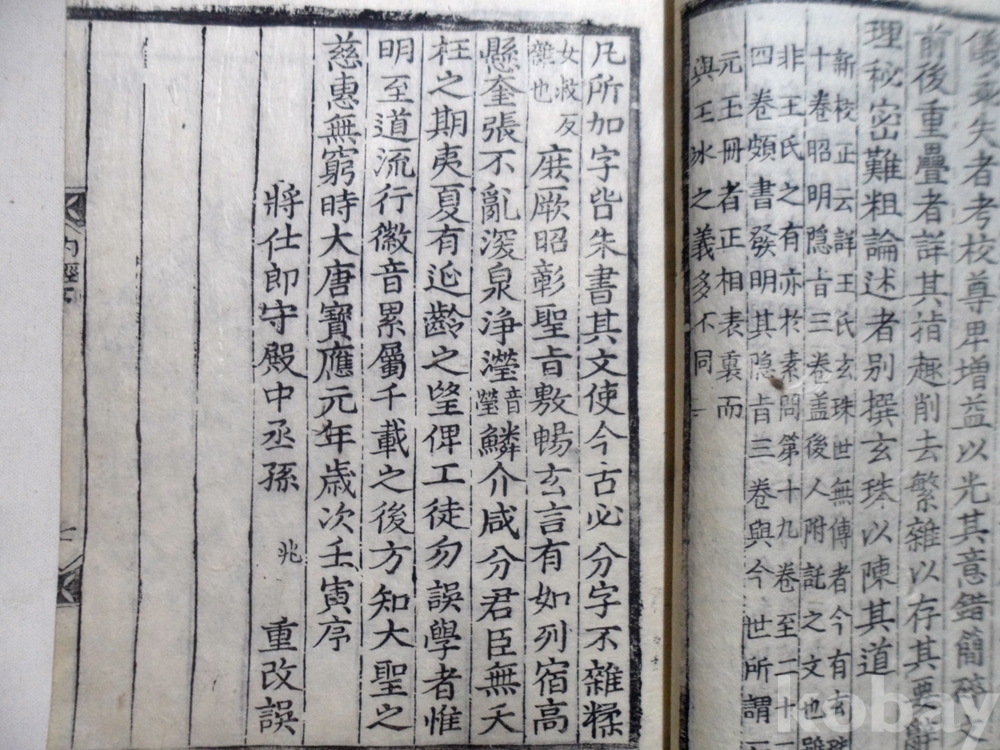 儀乖失者考校尊卑增益以光其意錯簡碎文
前後重疊者詳其指趣削去繁雜以存其要辭
理秘密難粗論述者别撰玄珠以陳其道
新校正云詳王氏玄珠世無傳者今有玄珠
十卷昭明隐旨三卷盖後人附託之文也雖
非王氏之有亦於素問第十九卷至二十二
四卷頗書發明其隐旨三卷與今世所謂天
元玉冊者正相表裏而
與王冰之義多不同
凡所加字皆朱書其文使今古必分字不雜糅
女救反
雜也
庶厥昭彰聖旨敷暢玄言有如列宿高
懸奎張不亂深泉浄瀅音瑩鱗介咸分君臣無夭
枉之期夷夏有延齡之望俾工徒勿誤學者惟
明至道流行徽音累屬千載之後方知大聖之
慈惠無窮時大唐寶應元年歳次壬寅序
將仕郎守殿中丞孫 兆 重改誤
内經
kobay